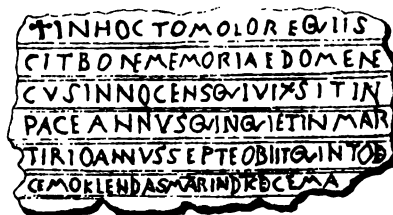 ✝INHOCTOMOLOREQVIIS
CITBONEMEMORIAEDOMENE
CVSINNOCENSQVIVIXSITIN
PACEANNVSQVINQVIETINMAR
TIRIOANNVSSEPTEOBIITQVINTODE
CEMOKLENDASMARINDKECEMA